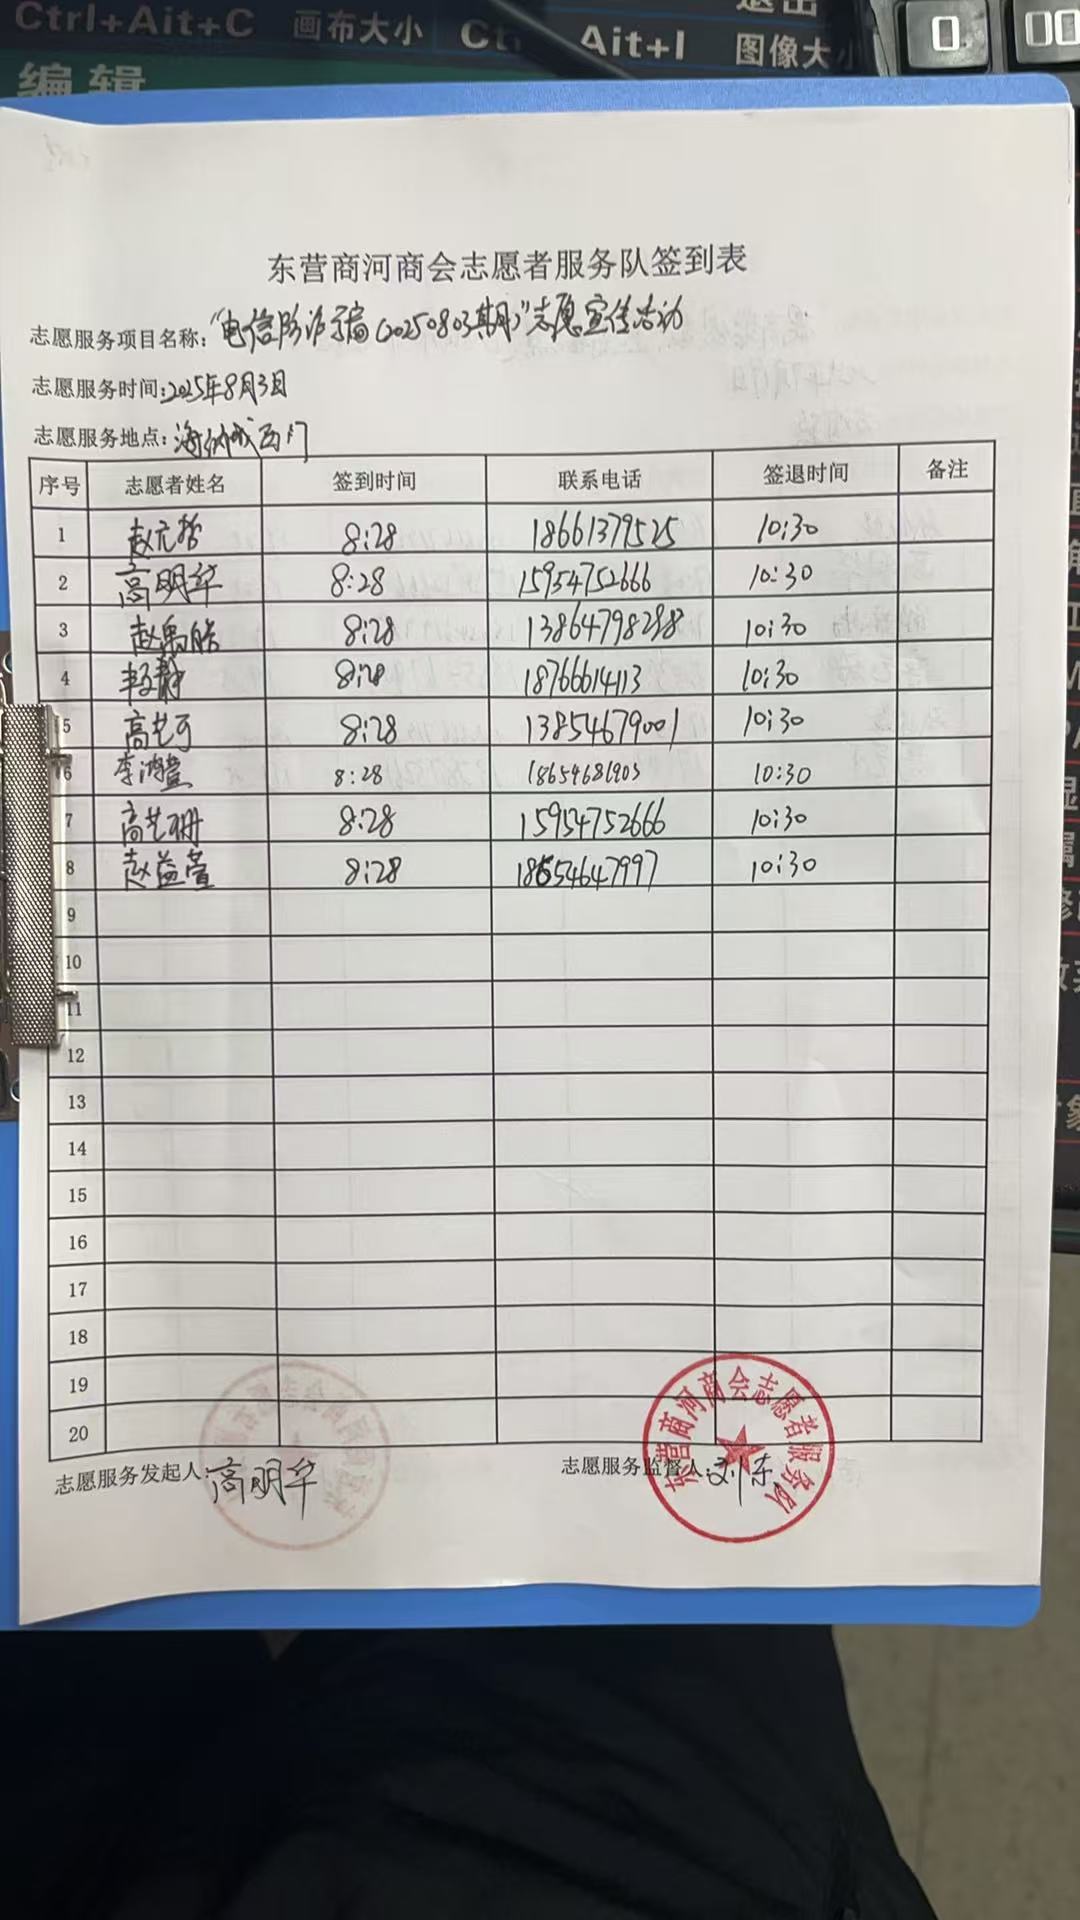 Ctrl+Ait+C 画布大小 Ait+I 图像大小
编辑
东营商河商会志愿者服务队签到表
志愿服务项目名称:"电信防诈骗(20250803期)"志愿宣传活动
志愿服务时间:2025年8月3日
志愿服务地点:海纳城西门
序号 志愿者姓名 签到时间 联系电话 签退时间 备注
1 赵元哲 8:28 18661379525 10:30
2 高明华 8:28 15954752666 10:30
3 赵禹皓 8:28 13864798298 10:30
4 8:28 18766614113 10:30
5 高艺可 8:28 13854679001 10:30
6 李鸿萱 8:28 18654681903 10:30
7 高艺珊 8:28 15954752666 10:30
8 赵益萱 8:28 18654647997 10:30
9
10
11
12
13
14
15
16
17
18
19
20
志愿服务发起人:高明华 志愿服务监督人:刘东
东营商河商会志愿者服务队